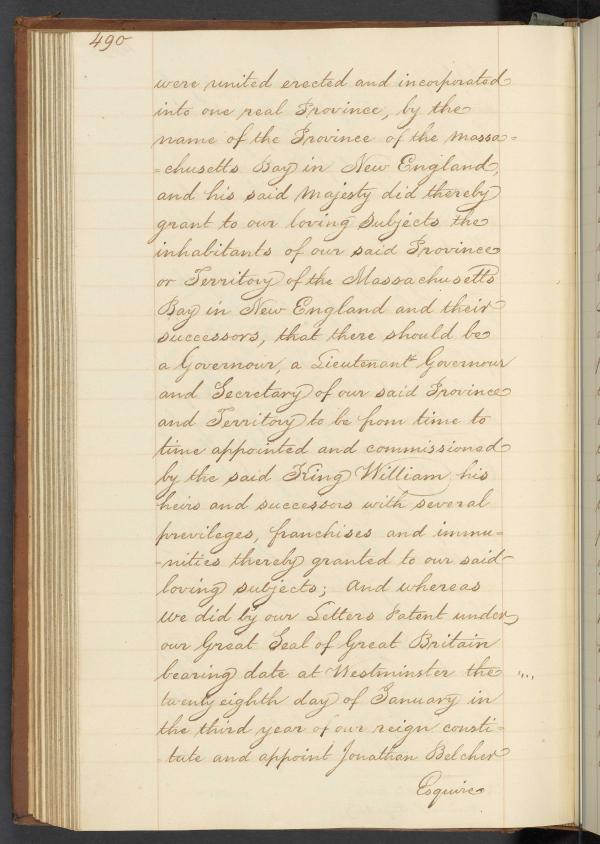 490
were united erected and incorporated
into one real Province, by the
name of the Province of the Massa=
=chusetts Bay in New England,
and his said Majesty did thereby
grant to our loving Subjects the
inhabitants of our said Province
or Territory of the Massachusetts
Bay in New England and their
successors, that there should be
a Governour, a Lieutenant Governour
and Secretary of our said Province
and Territory to be from time to
time appointed and commissioned
by the said King William, his
heirs and successors with several
previleges, franchises and immu=
=nities thereby granted to our said
loving subjects; And whereas
we did by our Letters Patent under
our Great Seal of Great Britain
bearing date at Westminster the
twenty eighth day of January in
the third year of our reign consti=
tute and appoint Jonathan Belcher
Esquire